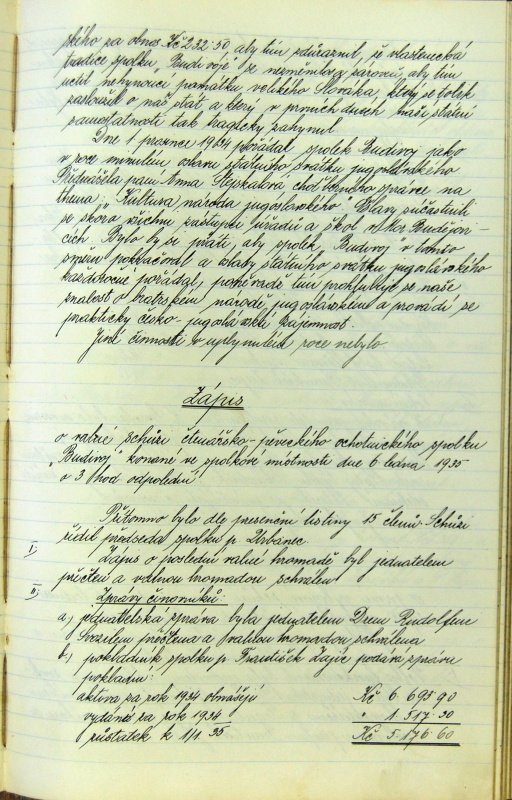 ského za obnos Kč 232·50, aby tím zdůraznil, že vlastenecká
tradice spolku „Budivoj" se nezměnila a zároveň, aby tím
uctil nehynoucí památku velikého Slováka, který se tolik
zasloužil o náš stát a který v prvních dnech naší státní
samostatnosti tak tragicky zahynul.
Dne 1. prosince 1934 pořádal spolek Budivoj jako
v roce minulém oslavu státního svátku jugoslávského.
Přednášela paní Anna Stejskalová choť berního správce na
thema: „Kultura národa jugoslávského". Oslavy súčastnili
se skoro všichni zástupci úřadů a škol v Budějovi-
cích. Bylo by si přáti, aby spolek „Budivoj" v tomto
směru pokračoval a oslavy státního svátku jugoslávského
každoročně pořádal, poněvadž tím prohlubuje se naše
znalost o bratrském národě jugoslávském a provádí se
prakticky česko-jugoslávská vzájemnost.
Jiné činnosti v uplynulém roce nebylo.
Zápis
o valné schůzi čtenářsko-pěveckého ochotnického spolku
„Budivoj" konané ve spolkové místnosti dne 6 ledna 1935
o 3 hod odpolední
Přítomno bylo dle presenční listiny 15 členů. Schůzi
řídil předseda spolku p. Urbánec.
I; Zápis o poslední valné hromadě byl jednatelem
přečten a valnou hromadou schválen
II; Zprávy činovníků:
a, jednatelská zpráva byla jednatelem Drem Rudolfem
přečtena a valnou hromadou schválena
b, pokladník spolku p František Zajíc podává zprávu
pokladní:
aktiva za rok 1934 obnášejí Kč 6.693 90
vydání za rok 1934 " 1.517·30
zůstatek k 1/1 35 Kč 5.176·60